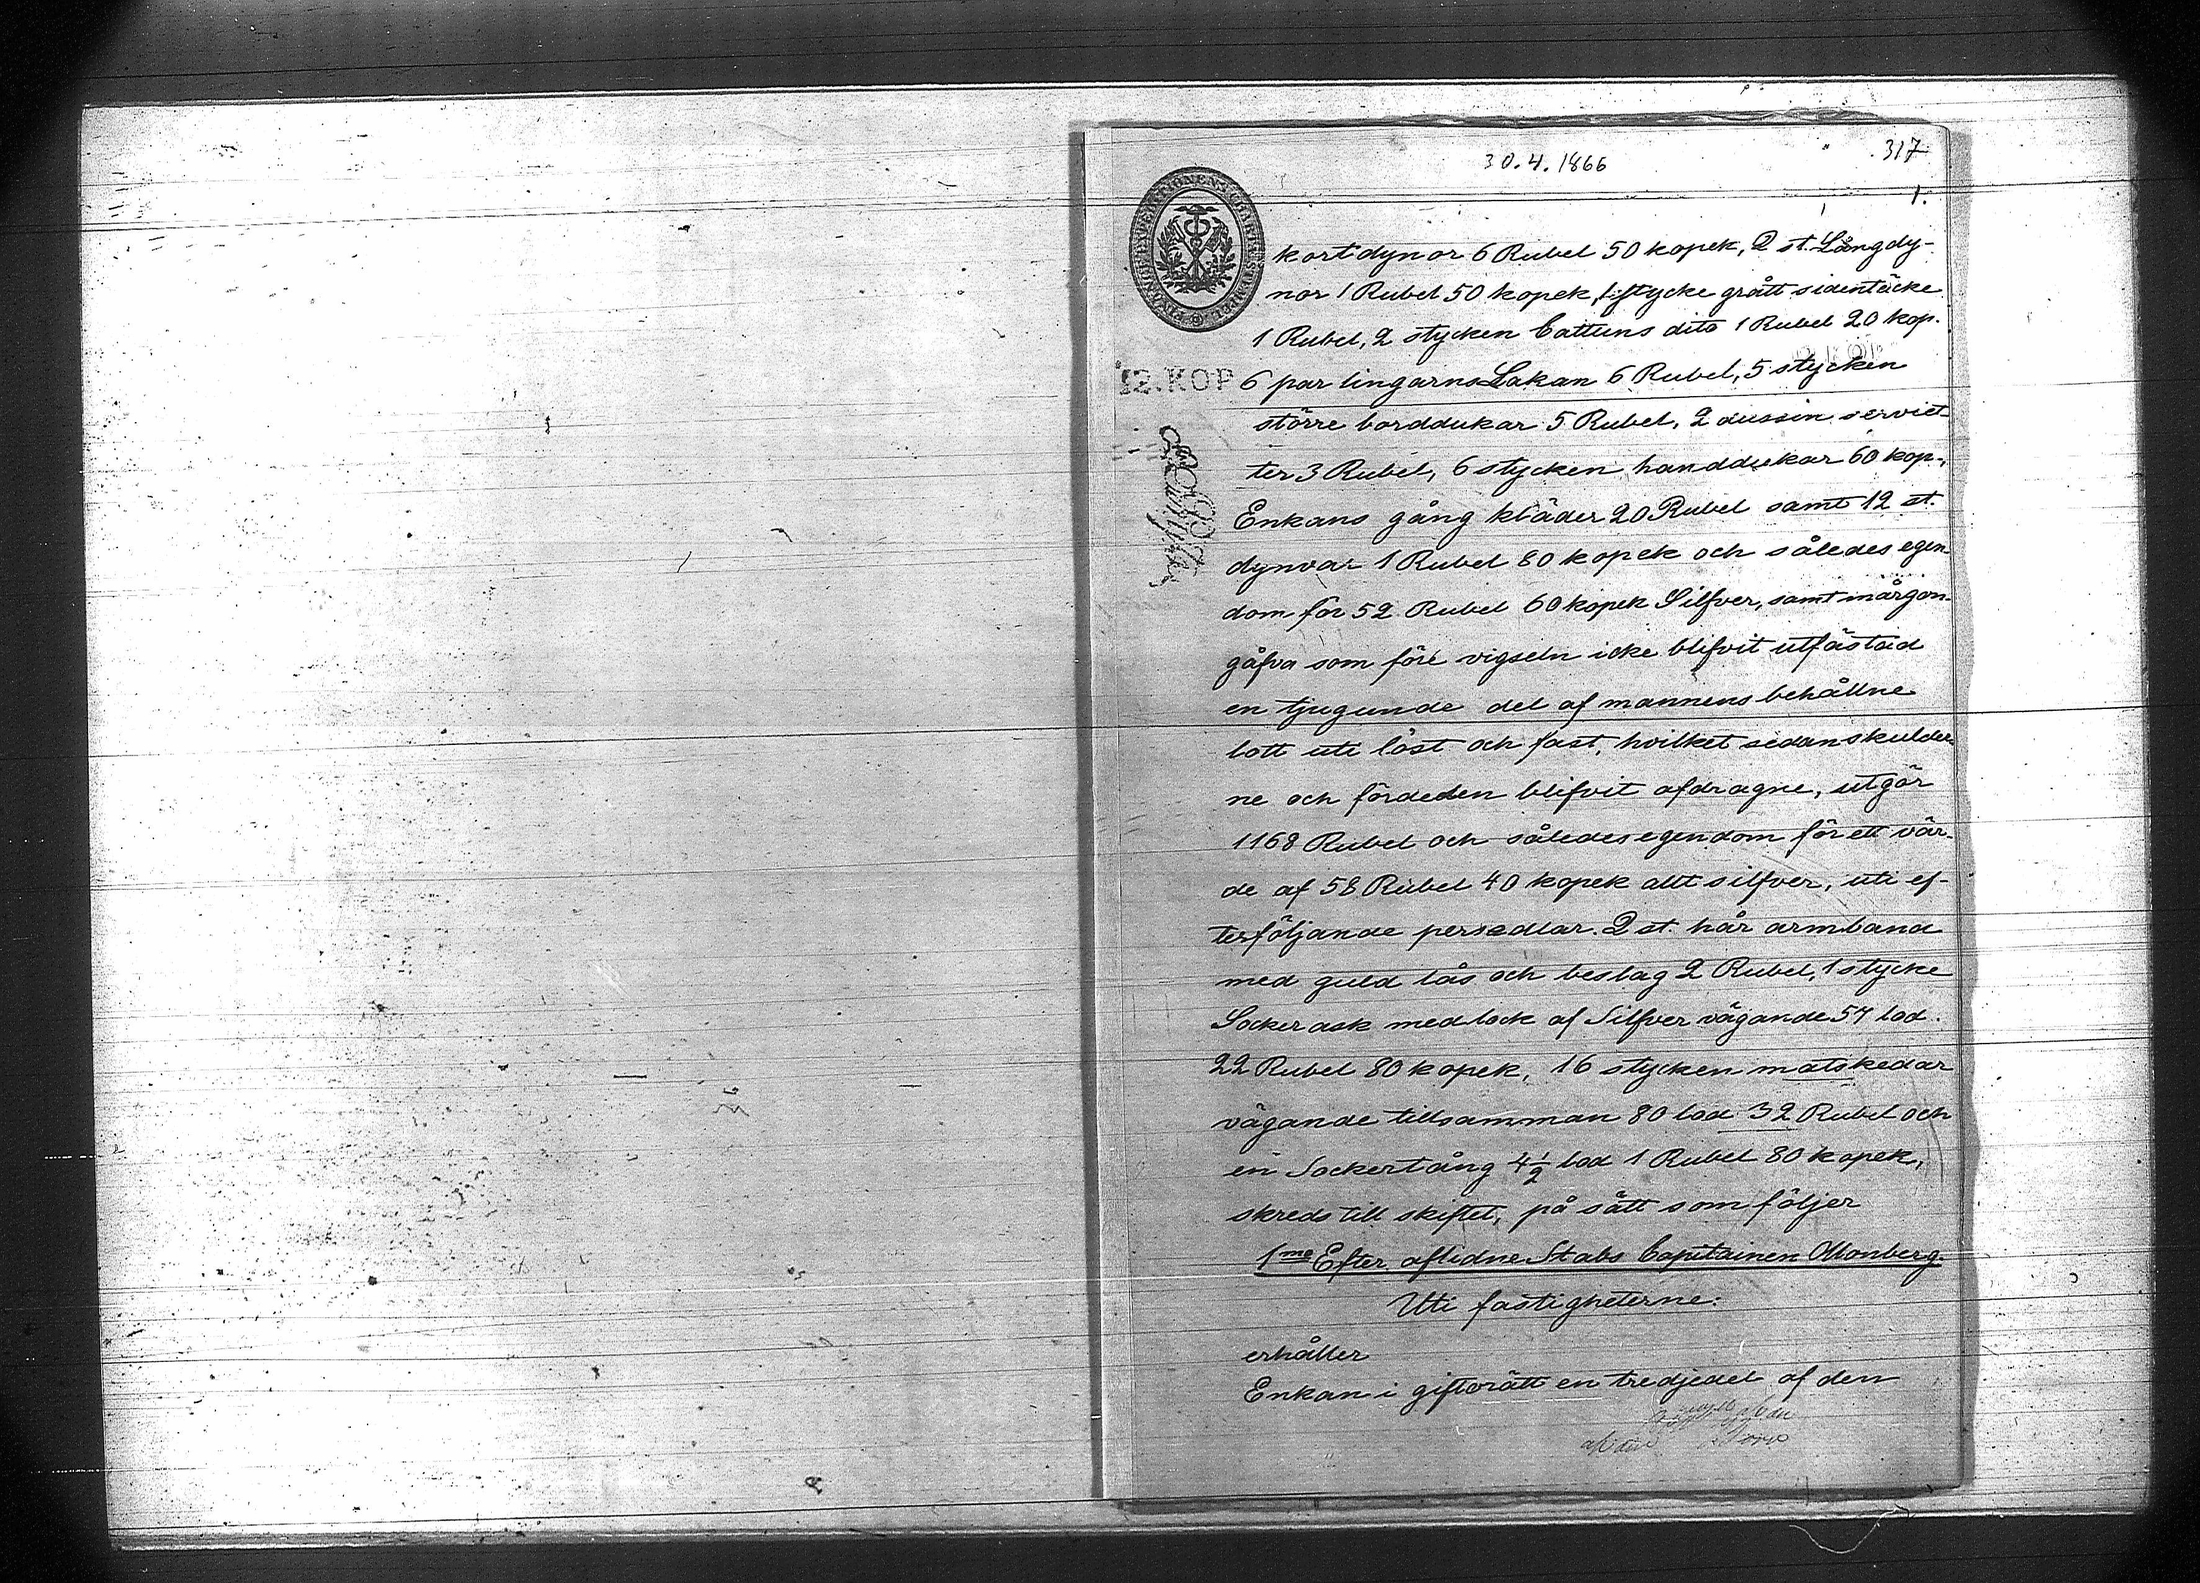 30.4.1866
317
1.
kortdynor 6 Rubel 50 kopek, 2 st. Långdy-
nor 1 Rubel 50 kopek, 1 stycke grått sidentäcke
1 Rubel, 2 stycken Cattuns dito 1 Rubel 20 kop.
12. KOP
6 par lingarns Lakan 6 Rubel, 5 stycken
större borddukar 5 Rubel, 2 dussin serviet-
ter 3 Rubel, 6 stycken handdukar 60 kop.,
Enkans gång kläder 20 Rubel samt 12 st.
dynvar 1 Rubel 80 kopek och således egen-
dom för 52 Rubel 60 kopek Silfver, samt morgon-
gåfva som före vigseln icke blifvit utfästad
en tjugunde del af mannens behållne
lott uti löst och fast, hvilket sedan skulder-
ne och fördelen blifvit afdragne, utgör
1168 Rubel och således egendom för ett vär-
de af 58 Rubel 40 kopek allt silfver, uti ef-
terföljande persedlar. 2 st. hår armband
med guld lås och beslag 2 Rubel, 1 stycke
Sockerask med lock af Silfver vägande 57 lod.
22 Rubel 80 kopek, 16 stycken matskedar
vägande tillsamman 80 lod 32 Rubel och
en Sockertång 4 1/2 lod 1 Rubel 80 kopek,
skreds till skiftet, på sätt som följer
1mo Efter aflidne Stabs Capitainen Monberg.
Uti fastigheterne:
erhåller
Enkan i giftorätt en tredjedel af den